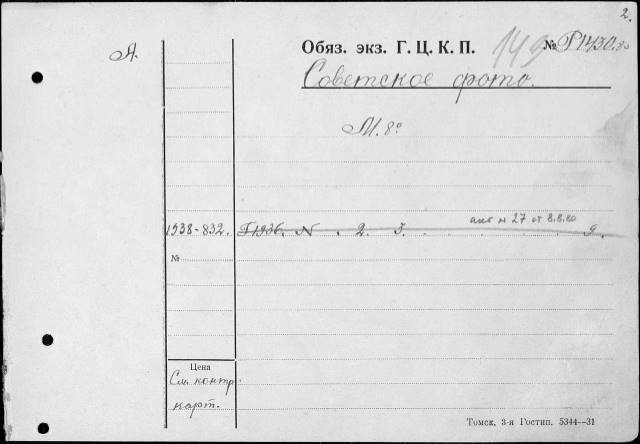 2.
А.
Обяз. экз. Г. Ц. К. П. 149 № Р1430.
Советское фото.
М. 8°
акт № 27 от 8.8.60
1938-832. Г1936. N . 2. 3. . . . . . . 9.
№
Цена
См. контр.
карт.
Томск, 3-я Гостип. 5344—31